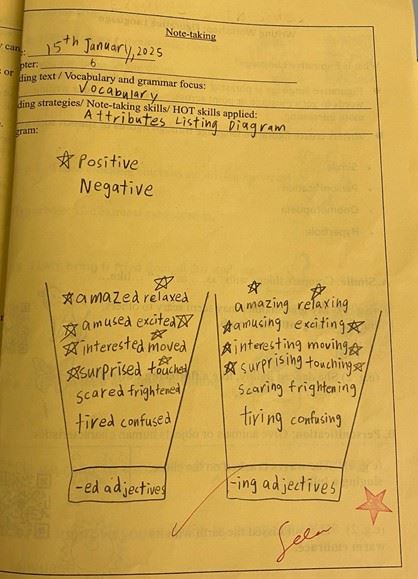 Note-taking
15th January, 2025
pter: 6
ding text / Vocabulary and grammar focus:
Vocabulary
ding strategies/ Note-taking skills/ HOT skills applied:
Attributes Listing Diagram
gram:
Positive
Negative
amazed relaxed
amused excited
interested moved
surprised touched
scared frightened
tired confused
-ed adjectives
amazing relaxing
amusing exciting
interesting moving
surprising touching
scaring frightening
tiring confusing
-ing adjectives